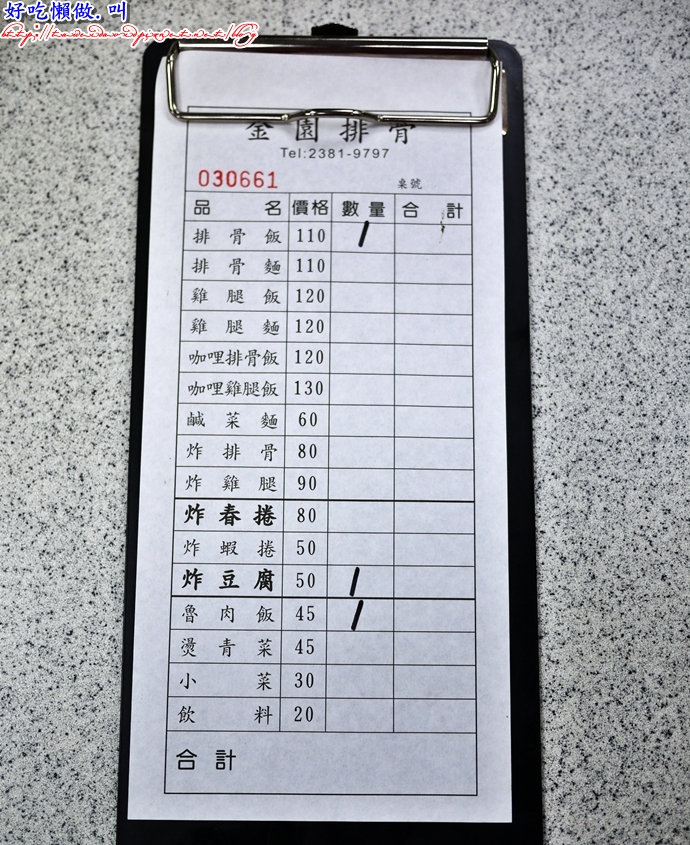 好吃懶做.叫
金園排骨
Tel:2381-9797
030661 桌號
品名 價格 數量 合計
排骨飯 110 /
排骨麵 110
雞腿飯 120
雞腿麵 120
咖哩排骨飯 120
咖哩雞腿飯 130
鹹菜麵 60
炸排骨 80
炸雞腿 90
炸春捲 80
炸蝦捲 50
炸豆腐 50 /
魯肉飯 45 /
燙青菜 45
小菜 30
飲料 20
合計